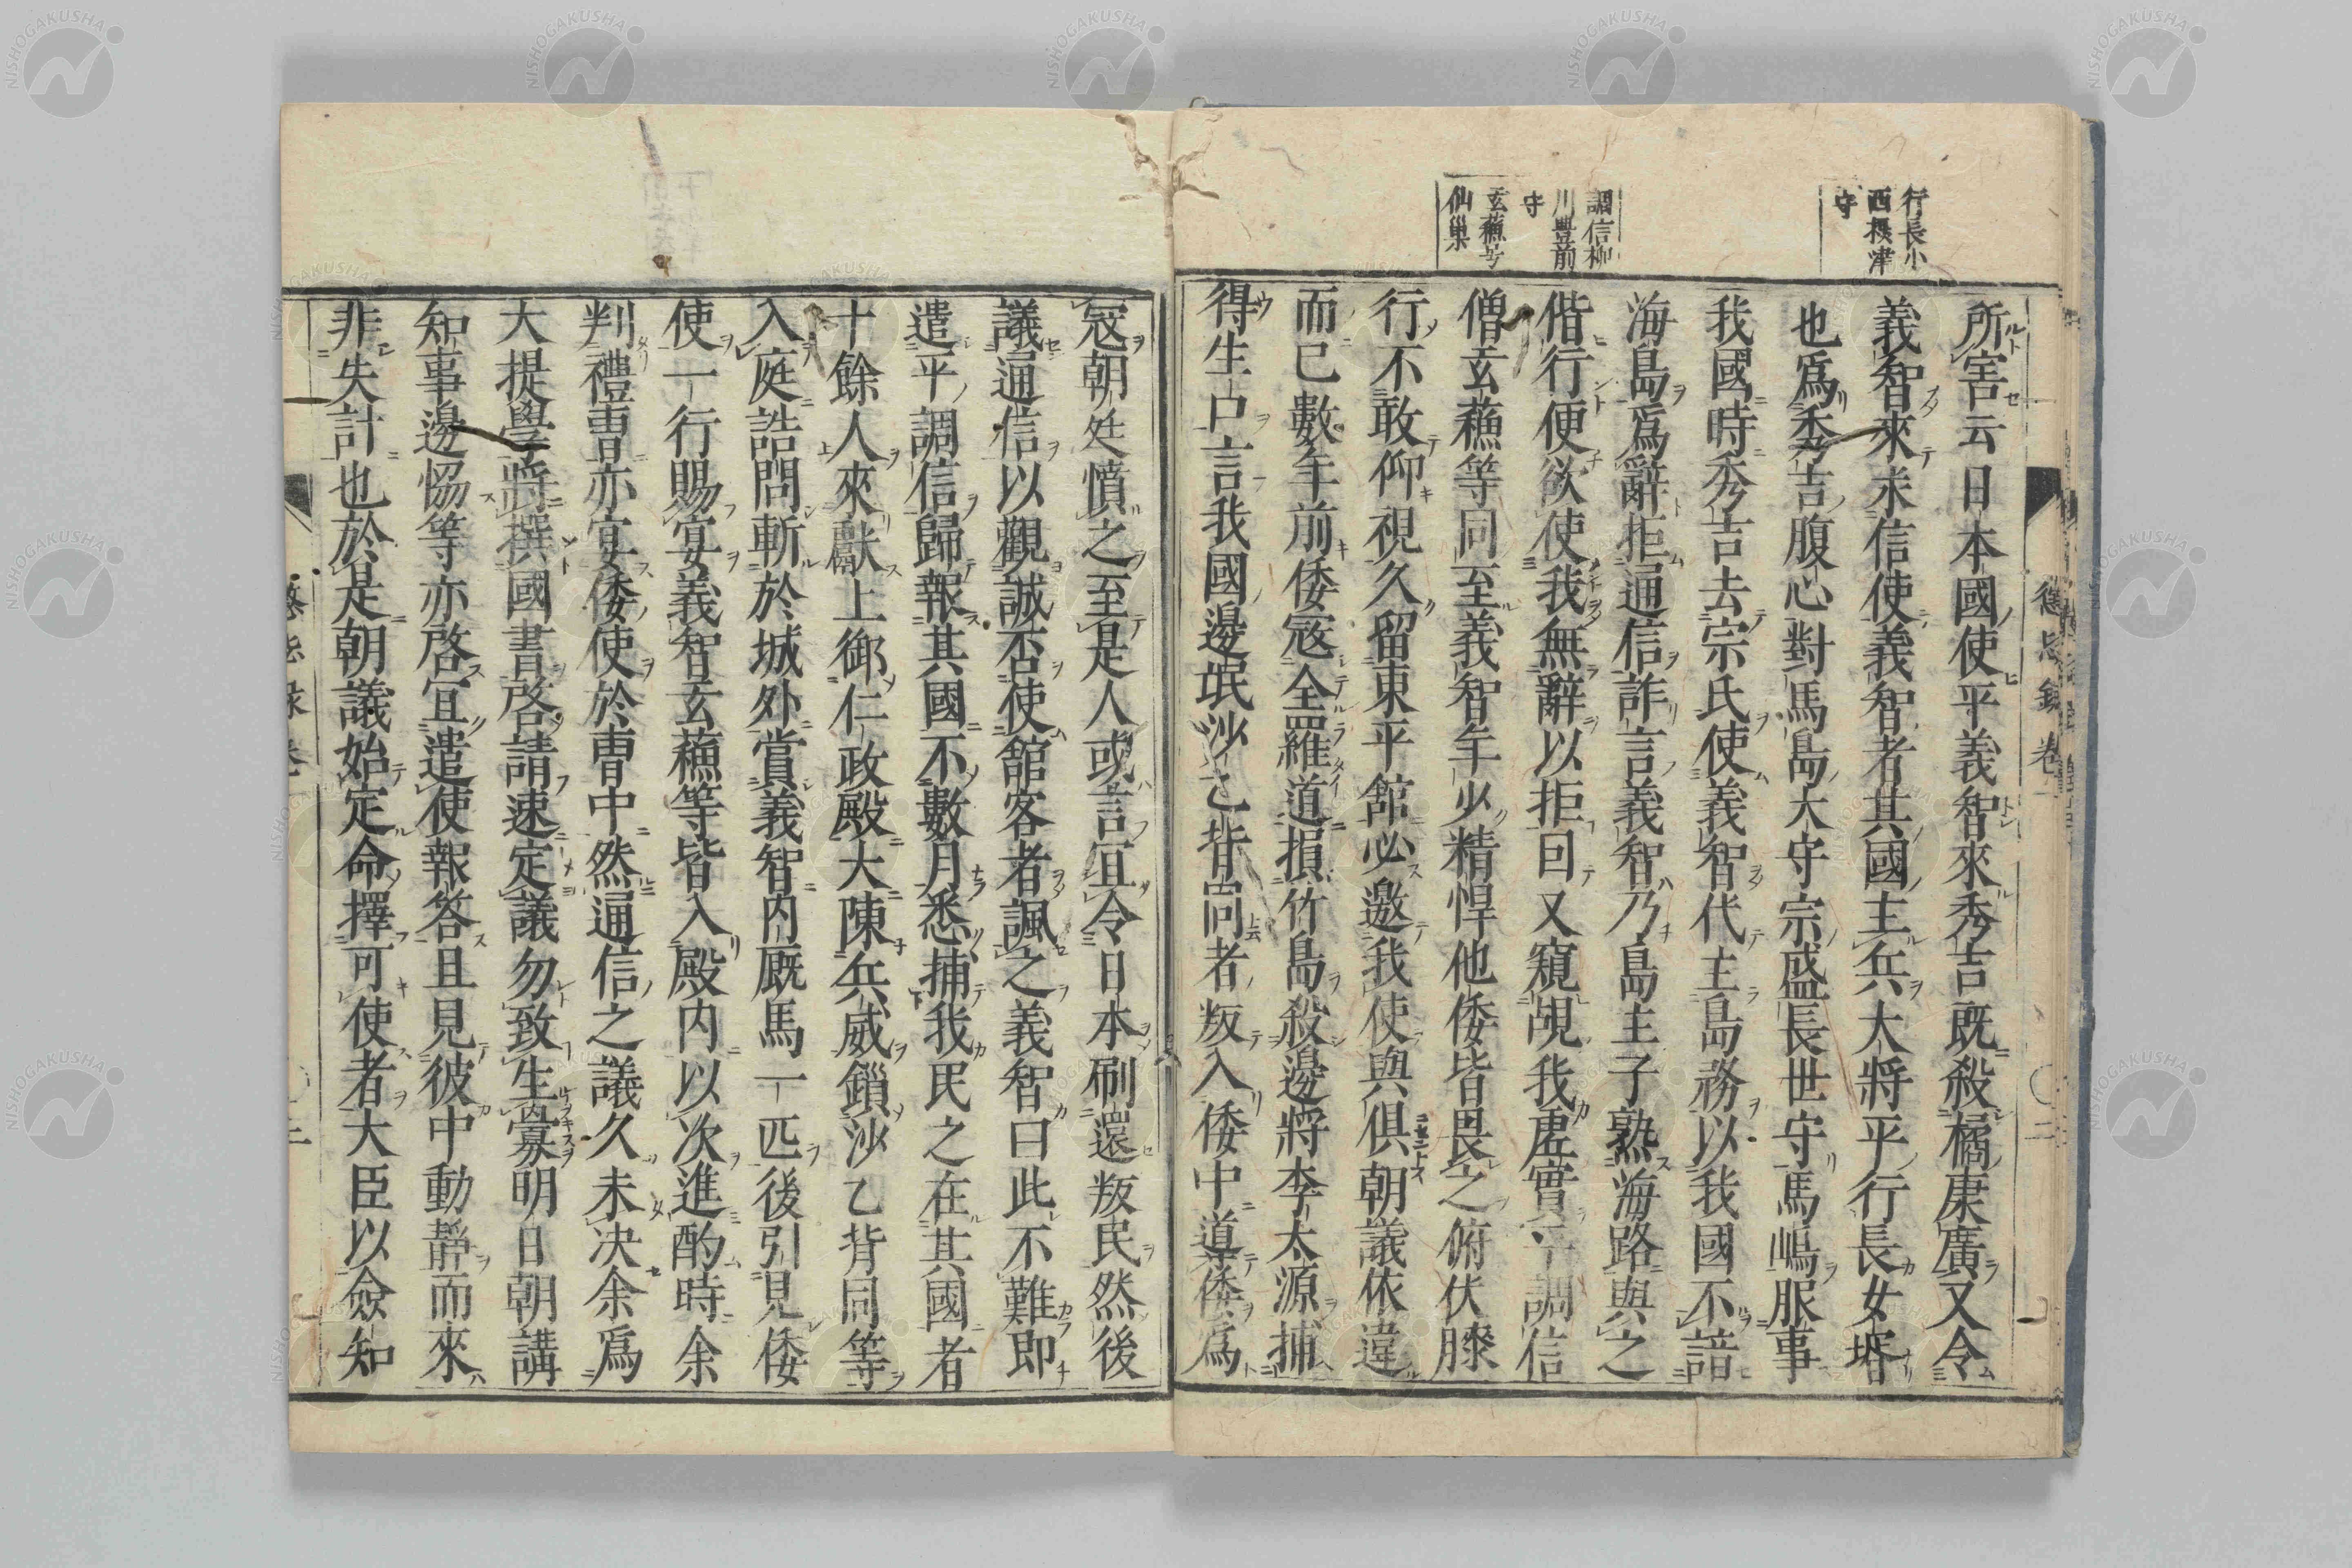 行長小
西攝津
守
調信柳
川豐前
守
玄蘓号
仙巢
所害云日本國使平義智來秀吉既殺橘康廣又令
義智來求信使義智者其國主兵大將平行長女壻
也爲秀吉腹心對馬島太守宗盛長世守馬嶋服事
我國時秀吉去宗氏使義智代主島務以我國不諳
海島爲辭拒通信詐言義智乃島主子熟海路與之
偕行便欲使我無辭以拒回又窺覘我虛實平調信
僧玄蘓等同至義智年少精悍他倭皆畏之俯伏膝
行不敢仰視久留東平館必邀我使與俱朝議依違
而已數年前倭寇全羅道損竹島殺邊將李太源捕
得生口言我國邊氓沙乙背同者叛入倭中導倭爲
寇朝廷憤之至是人或言宜令日本刷還叛民然後
議通信以觀誠否使館客者諷之義智曰此不難即
遣平調信歸報其國不數月悉捕我民之在其國者
十餘人來獻上御仁政殿大陳兵威鎖沙乙背同等
入庭詰問斬於城外賞義智内厩馬一匹後引見倭
使一行賜宴義智玄蘓等皆入殿内以次進酌時余
判禮曹亦宴倭使於曹中然通信之議久未决余爲
大提學將撰國書啓請速定議勿致生釁明日朝講
知事邊恊等亦啓宜遣使報答且見彼中動靜而來
非失計也於是朝議始定命擇可使者大臣以僉知